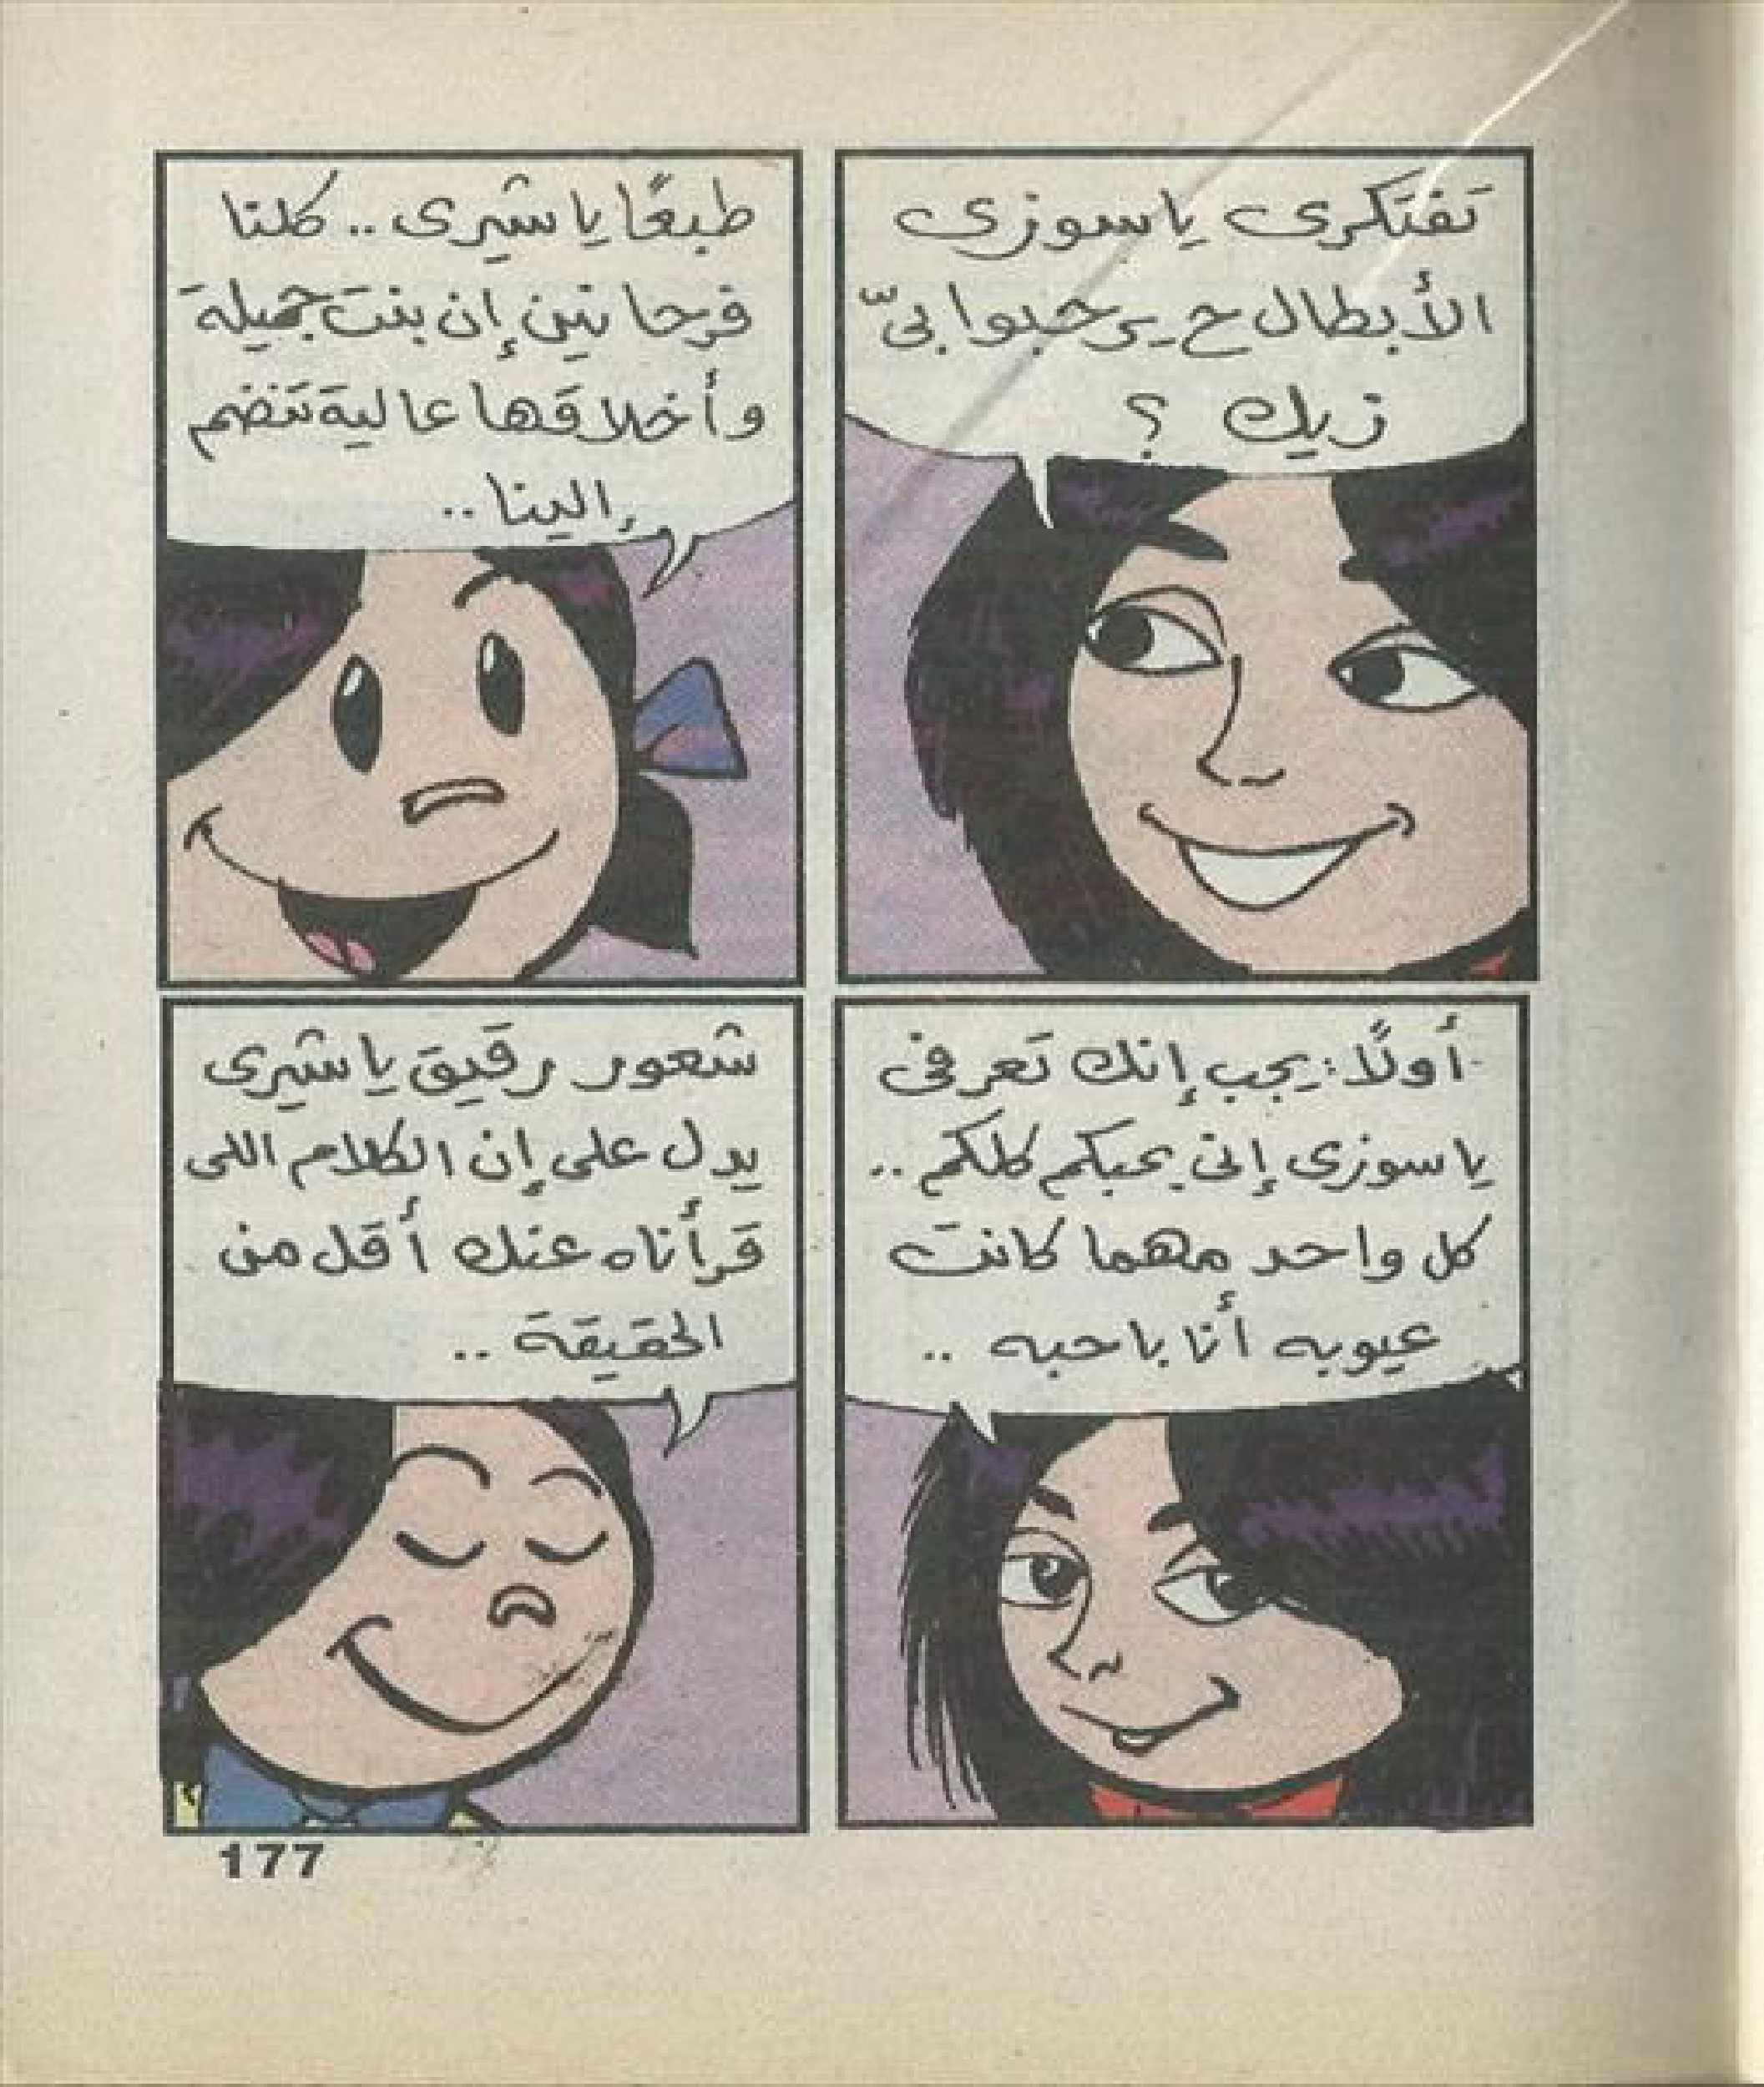 تَفتَكرى ياسوزى
الأبطال ح يرحبوا بىّ
زيك ؟
طبعًا ياشيرى .. كلنا
فرحانين إن بنت جميلة
وأخلاقها عالية تنضم
إلينا ..
أولًا : يجب إنك تعرفى
ياسوزى إنى بحبكم كلكم ..
كل واحد مهما كانت
عيوبه أنا باحبه ..
شعور رقيق ياشيرى
يدل على إن الكلام اللى
قرأناه عنك أقل من
الحقيقة ..
177